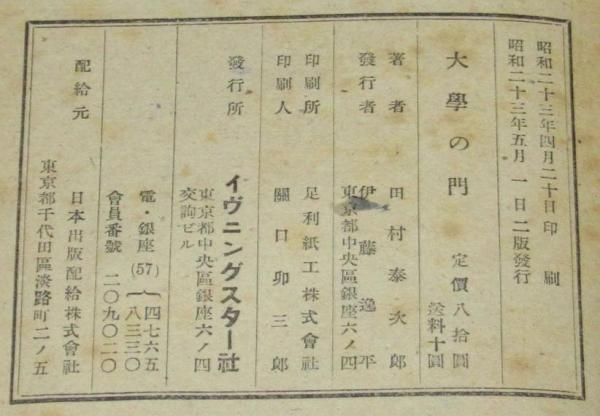 昭和二十三年四月二十日印刷
昭和二十三年五月一日二版發行
大學の門
定價八拾圓
送料十圓
著者 田村泰次郎
發行者 伊藤逸平
東京都中央區銀座六ノ四
印刷所 足利紙工株式會社
印刷人 關口卯三郎
發行所 イヴニングスター社
東京都中央區銀座六ノ四
交詢ビル
電・銀座(57){四七六五
八三三〇
會員番號 二〇九〇二〇
配給元 日本出版配給株式會社
東京都千代田區淡路町二ノ五